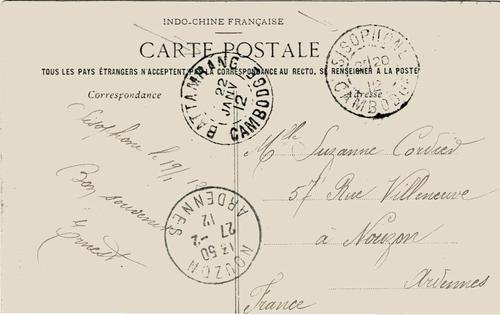 INDO-CHINE FRANÇAISE
CARTE POSTALE
TOUS LES PAYS ÉTRANGERS N'ACCEPTENT PAS LA CORRESPONDANCE AU RECTO, SE RENSEIGNER A LA POSTE
Correspondance
Adresse
BATTAMBANG
22
JANV
12
CAMBODGE
SISOPHON
20
12
CAMBODGE
Sisophone le 19/1
Bon souvenir
Ernest
Mlle Suzanne
57 Rue Villeneuve
à Nouzon
Ardennes
France
NOUZON
13 50
27 -2
12
ARDENNES